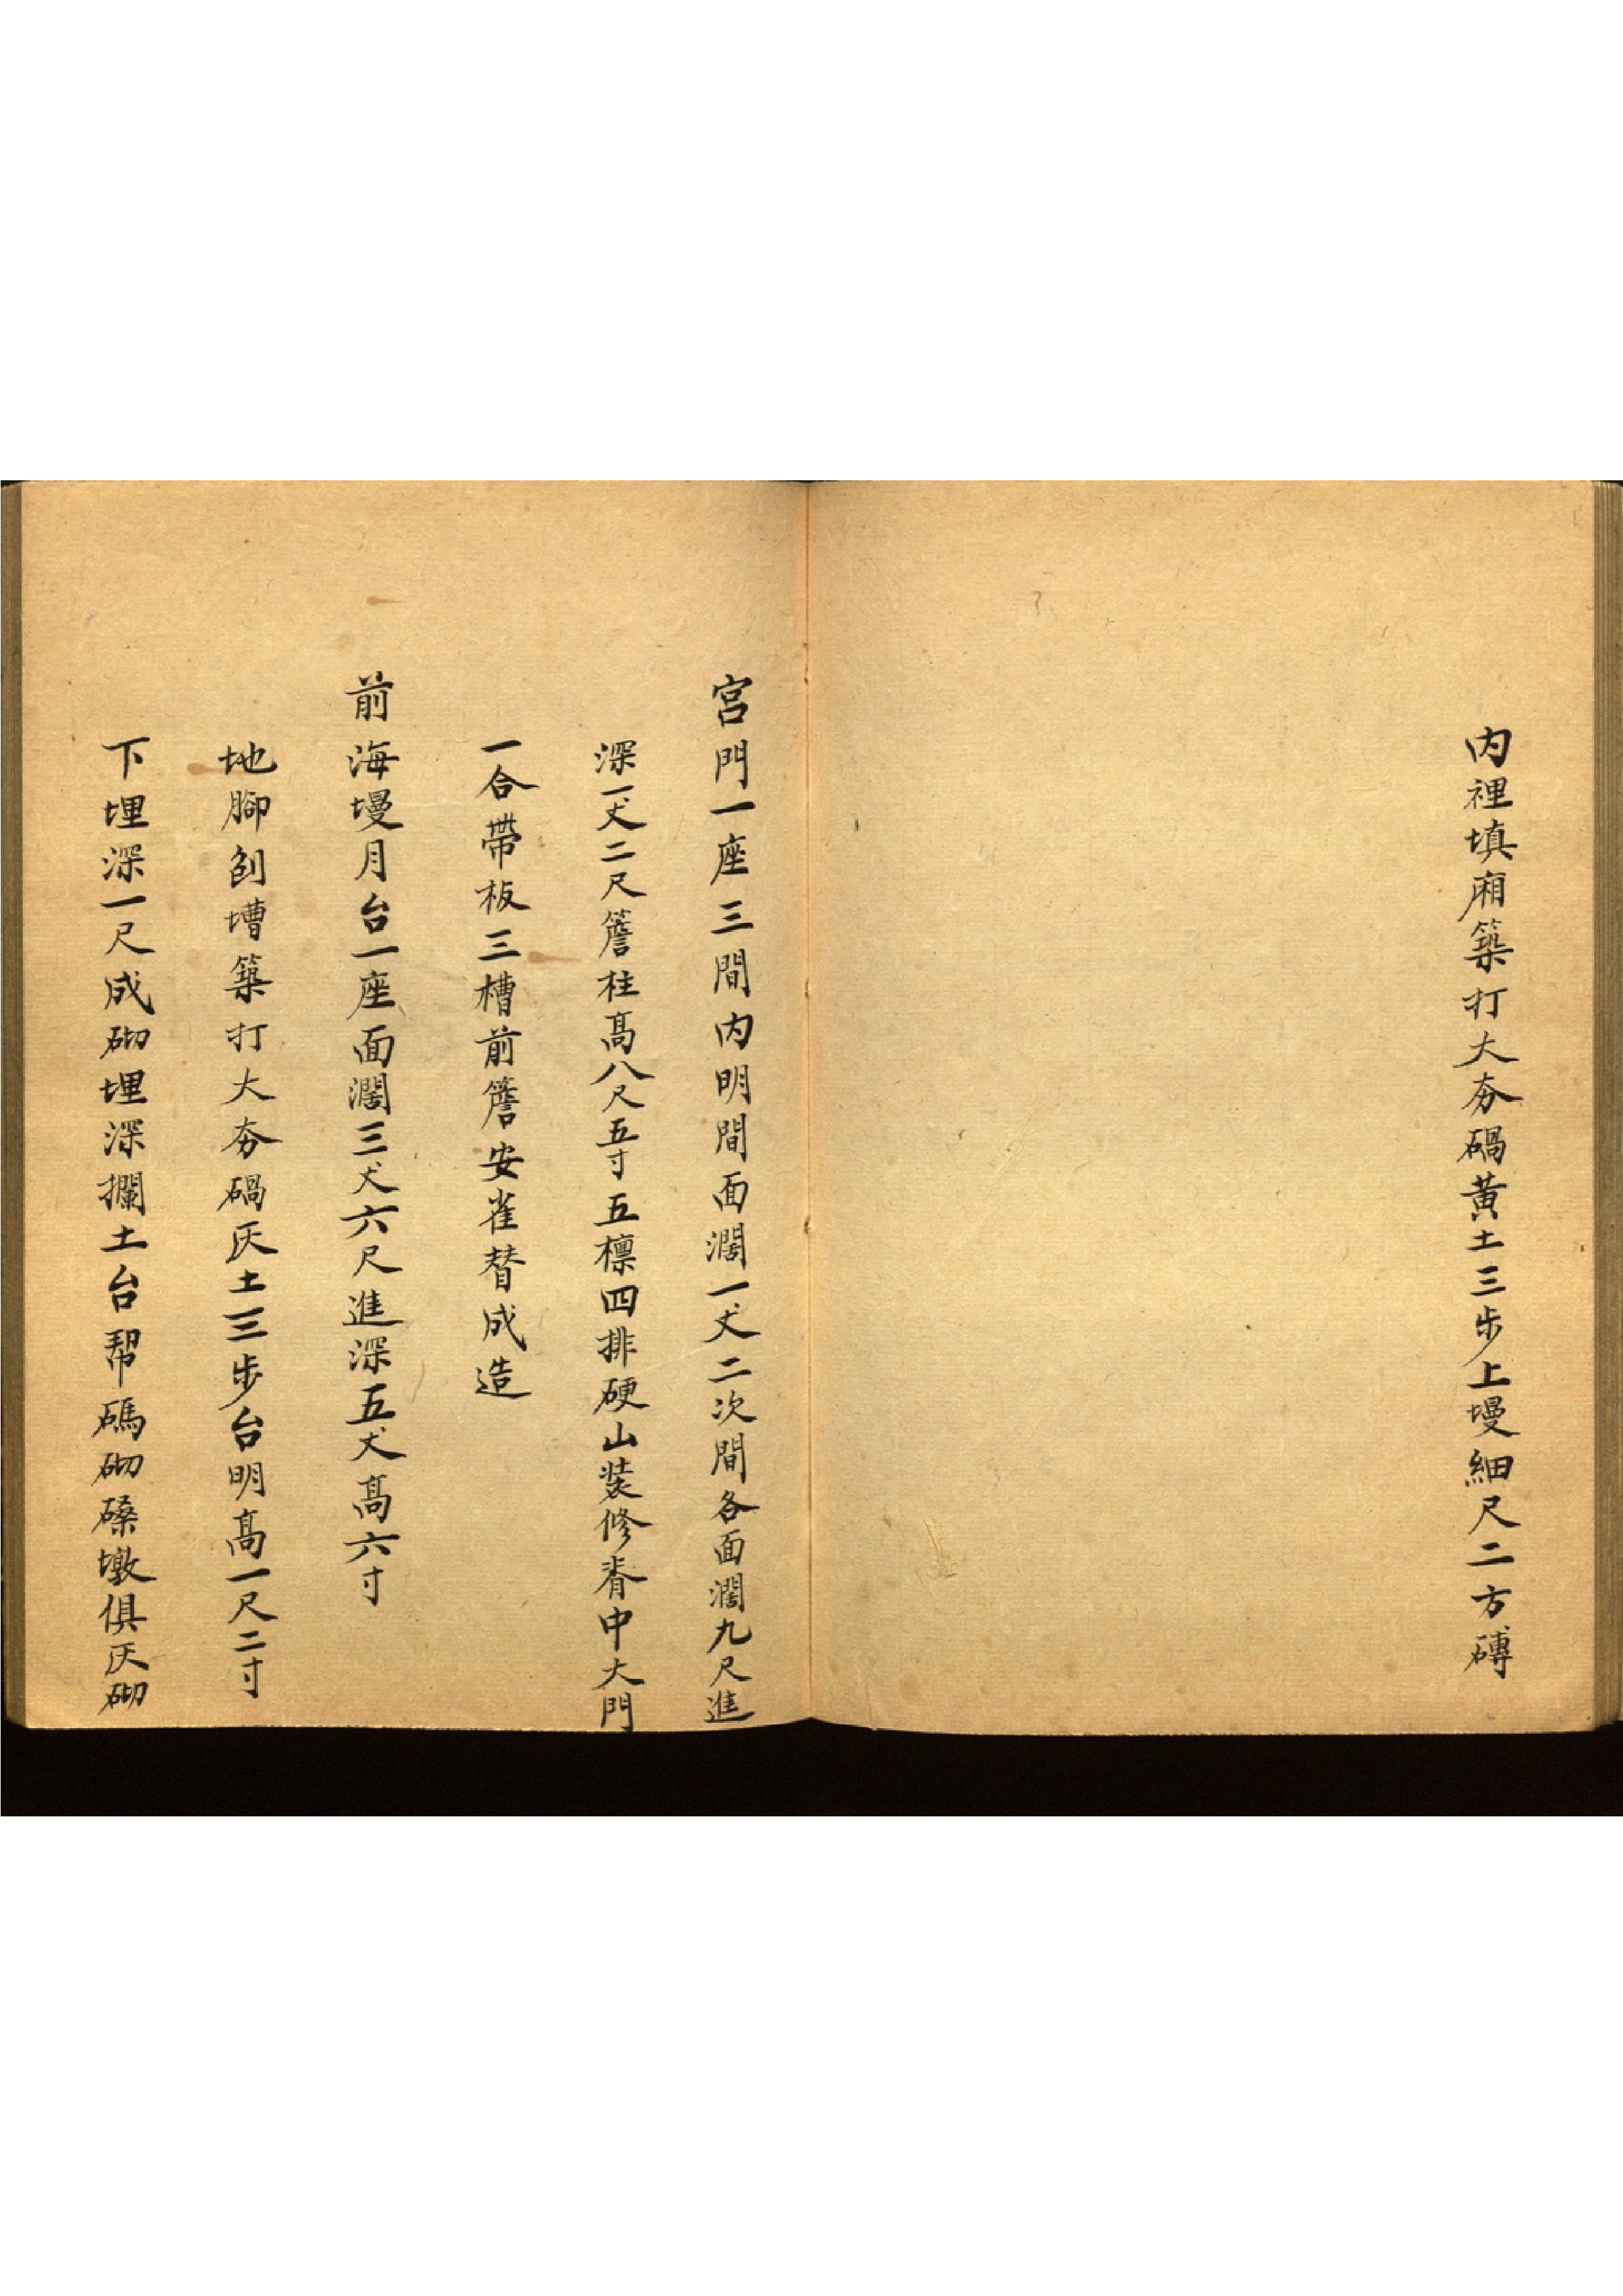 内裡填廂築打大夯碢黄土三步上墁細尺二方磚
宫門一座三間内明間面濶一丈二次間各面濶九尺進
深一丈二尺簷柱髙八尺五寸五檁四排硬山装修脊中大門
一合帶板三槽前簷安雀替成造
前海墁月台一座面濶三丈六尺進深五丈髙六寸
地腳刨壋築打大夯碢灰土三步台明髙一尺二寸
下埋深一尺成砌埋深攔土台帮碼砌磉墩俱灰砌